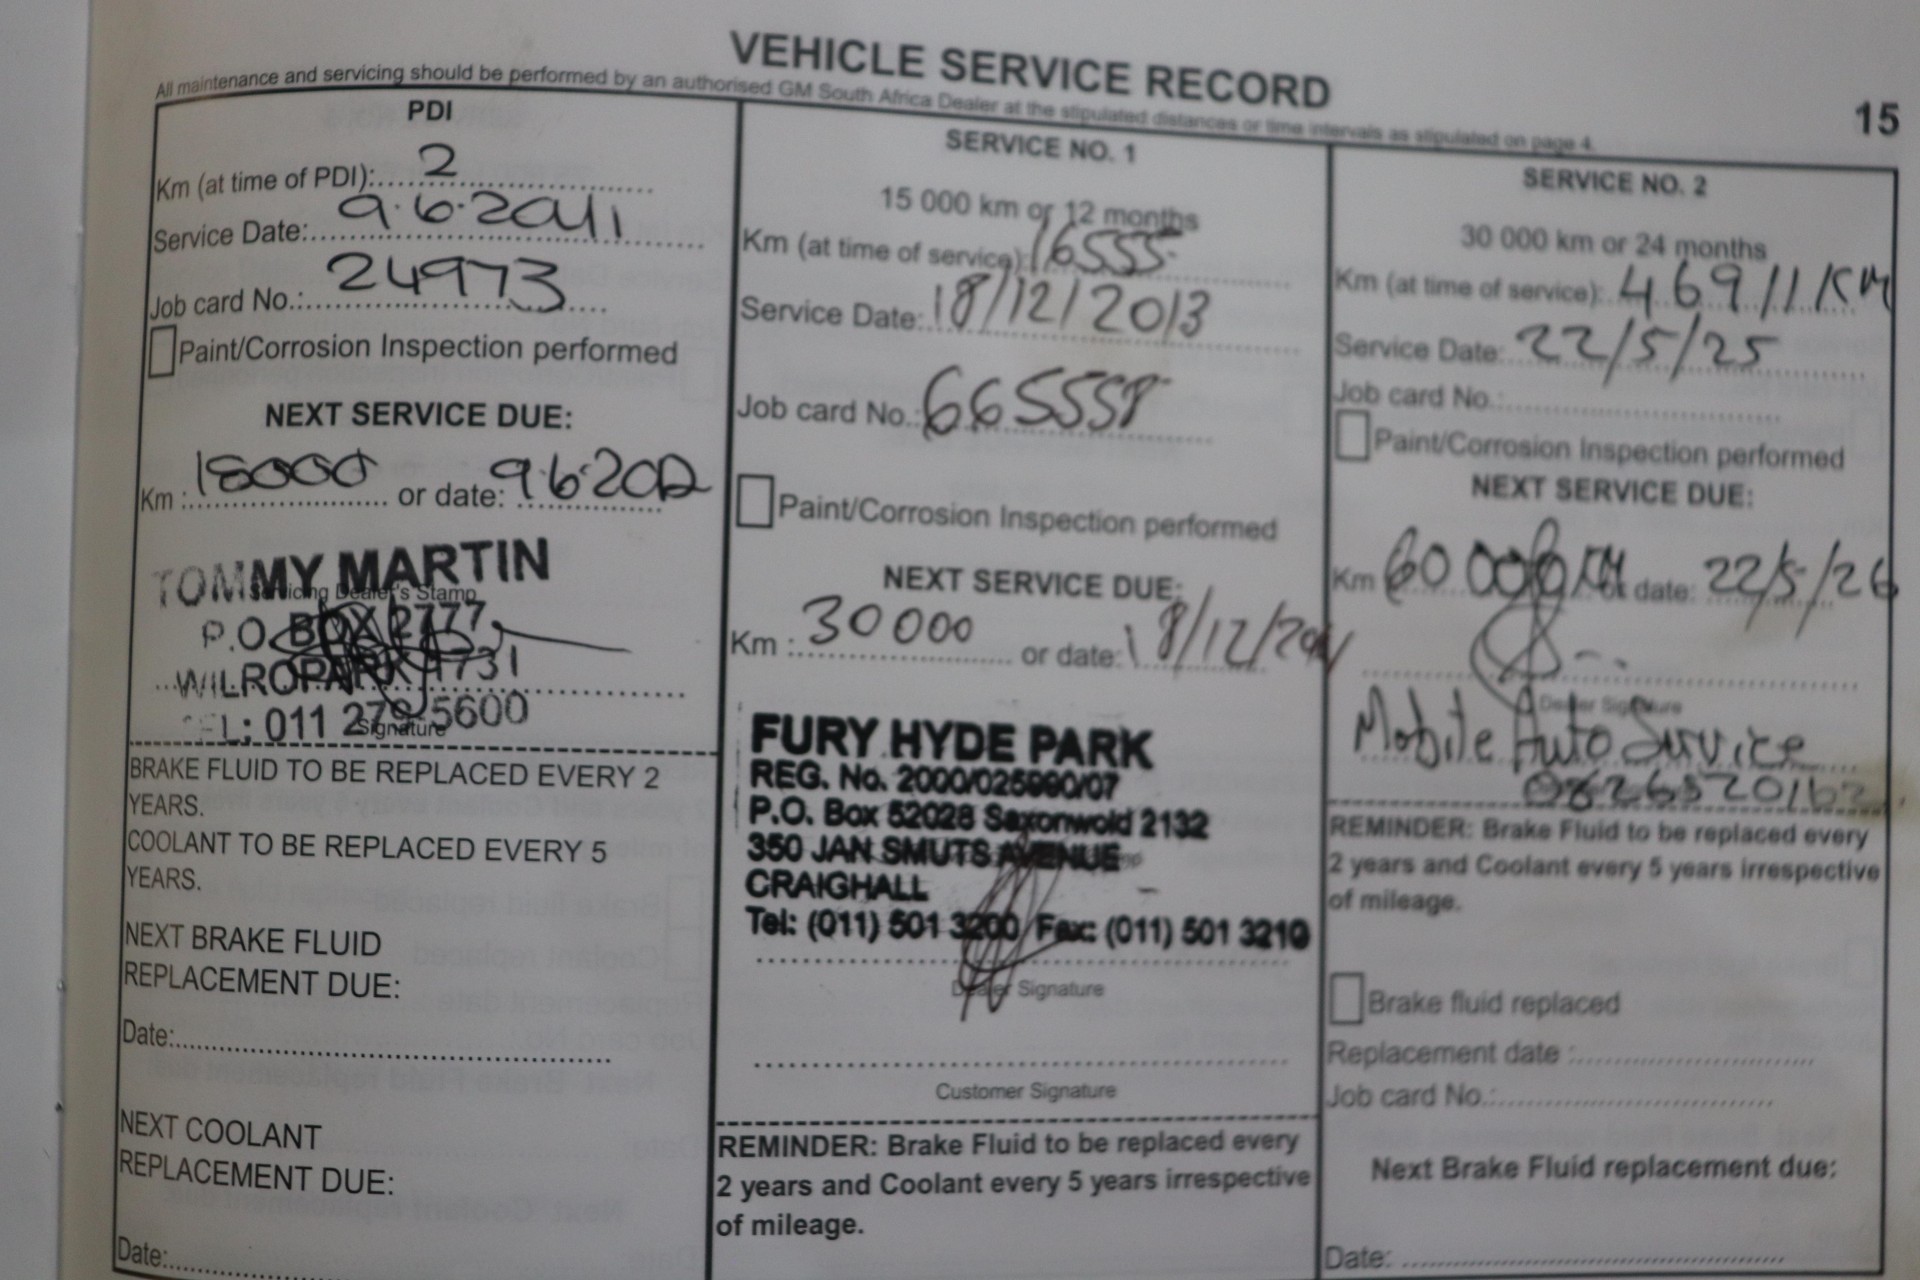 VEHICLE SERVICE RECORD
15
All maintenance and servicing should be performed by an authorised GM South Africa Dealer at the stipulated distances or time intervals as stipulated on page 4.
PDI
Km (at time of PDI): 2
Service Date: 9.6.2011
Job card No.: 24973
Paint/Corrosion Inspection performed
NEXT SERVICE DUE:
Km : 15000 or date: 9.6.2012
TOMMY MARTIN
Servicing Dealer's Stamp
P.O. BOX 2777
WILROPARK 1731
TEL: 011 279 5600
Signature
BRAKE FLUID TO BE REPLACED EVERY 2
YEARS.
COOLANT TO BE REPLACED EVERY 5
YEARS.
NEXT BRAKE FLUID
REPLACEMENT DUE:
Date:
NEXT COOLANT
REPLACEMENT DUE:
Date:
SERVICE NO. 1
15 000 km or 12 months
Km (at time of service): 16555
Service Date: 18/12/2013
Job card No.: 665558
Paint/Corrosion Inspection performed
NEXT SERVICE DUE:
Km : 30000 or date: 18/12/2014
FURY HYDE PARK
REG. No. 2000/025990/07
P.O. Box 52028 Saxonwold 2132
350 JAN SMUTS AVENUE
CRAIGHALL
Tel: (011) 501 3200 Fax: (011) 501 3210
Dealer Signature
Customer Signature
REMINDER: Brake Fluid to be replaced every
2 years and Coolant every 5 years irrespective
of mileage.
SERVICE NO. 2
30 000 km or 24 months
Km (at time of service): 46911 KM
Service Date: 22/5/25
Job card No.:
Paint/Corrosion Inspection performed
NEXT SERVICE DUE:
Km 60 000 KM or date: 22/5/26
Dealer Signature
Mobile Auto Service
0826520162
REMINDER: Brake Fluid to be replaced every
2 years and Coolant every 5 years irrespective
of mileage.
Brake fluid replaced
Replacement date :
Job card No.:
Next Brake Fluid replacement due:
Date: